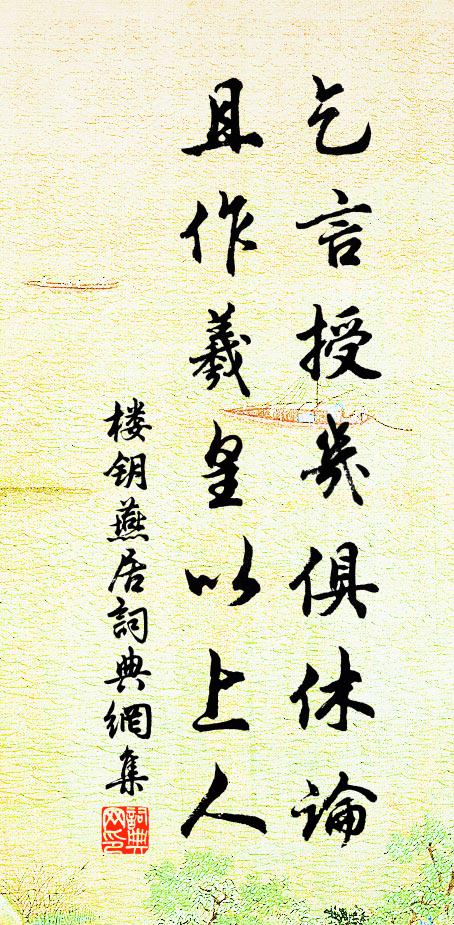 乞言授几俱休論
且作羲皇以上人
楼钥燕居詞典網集
詞典网印